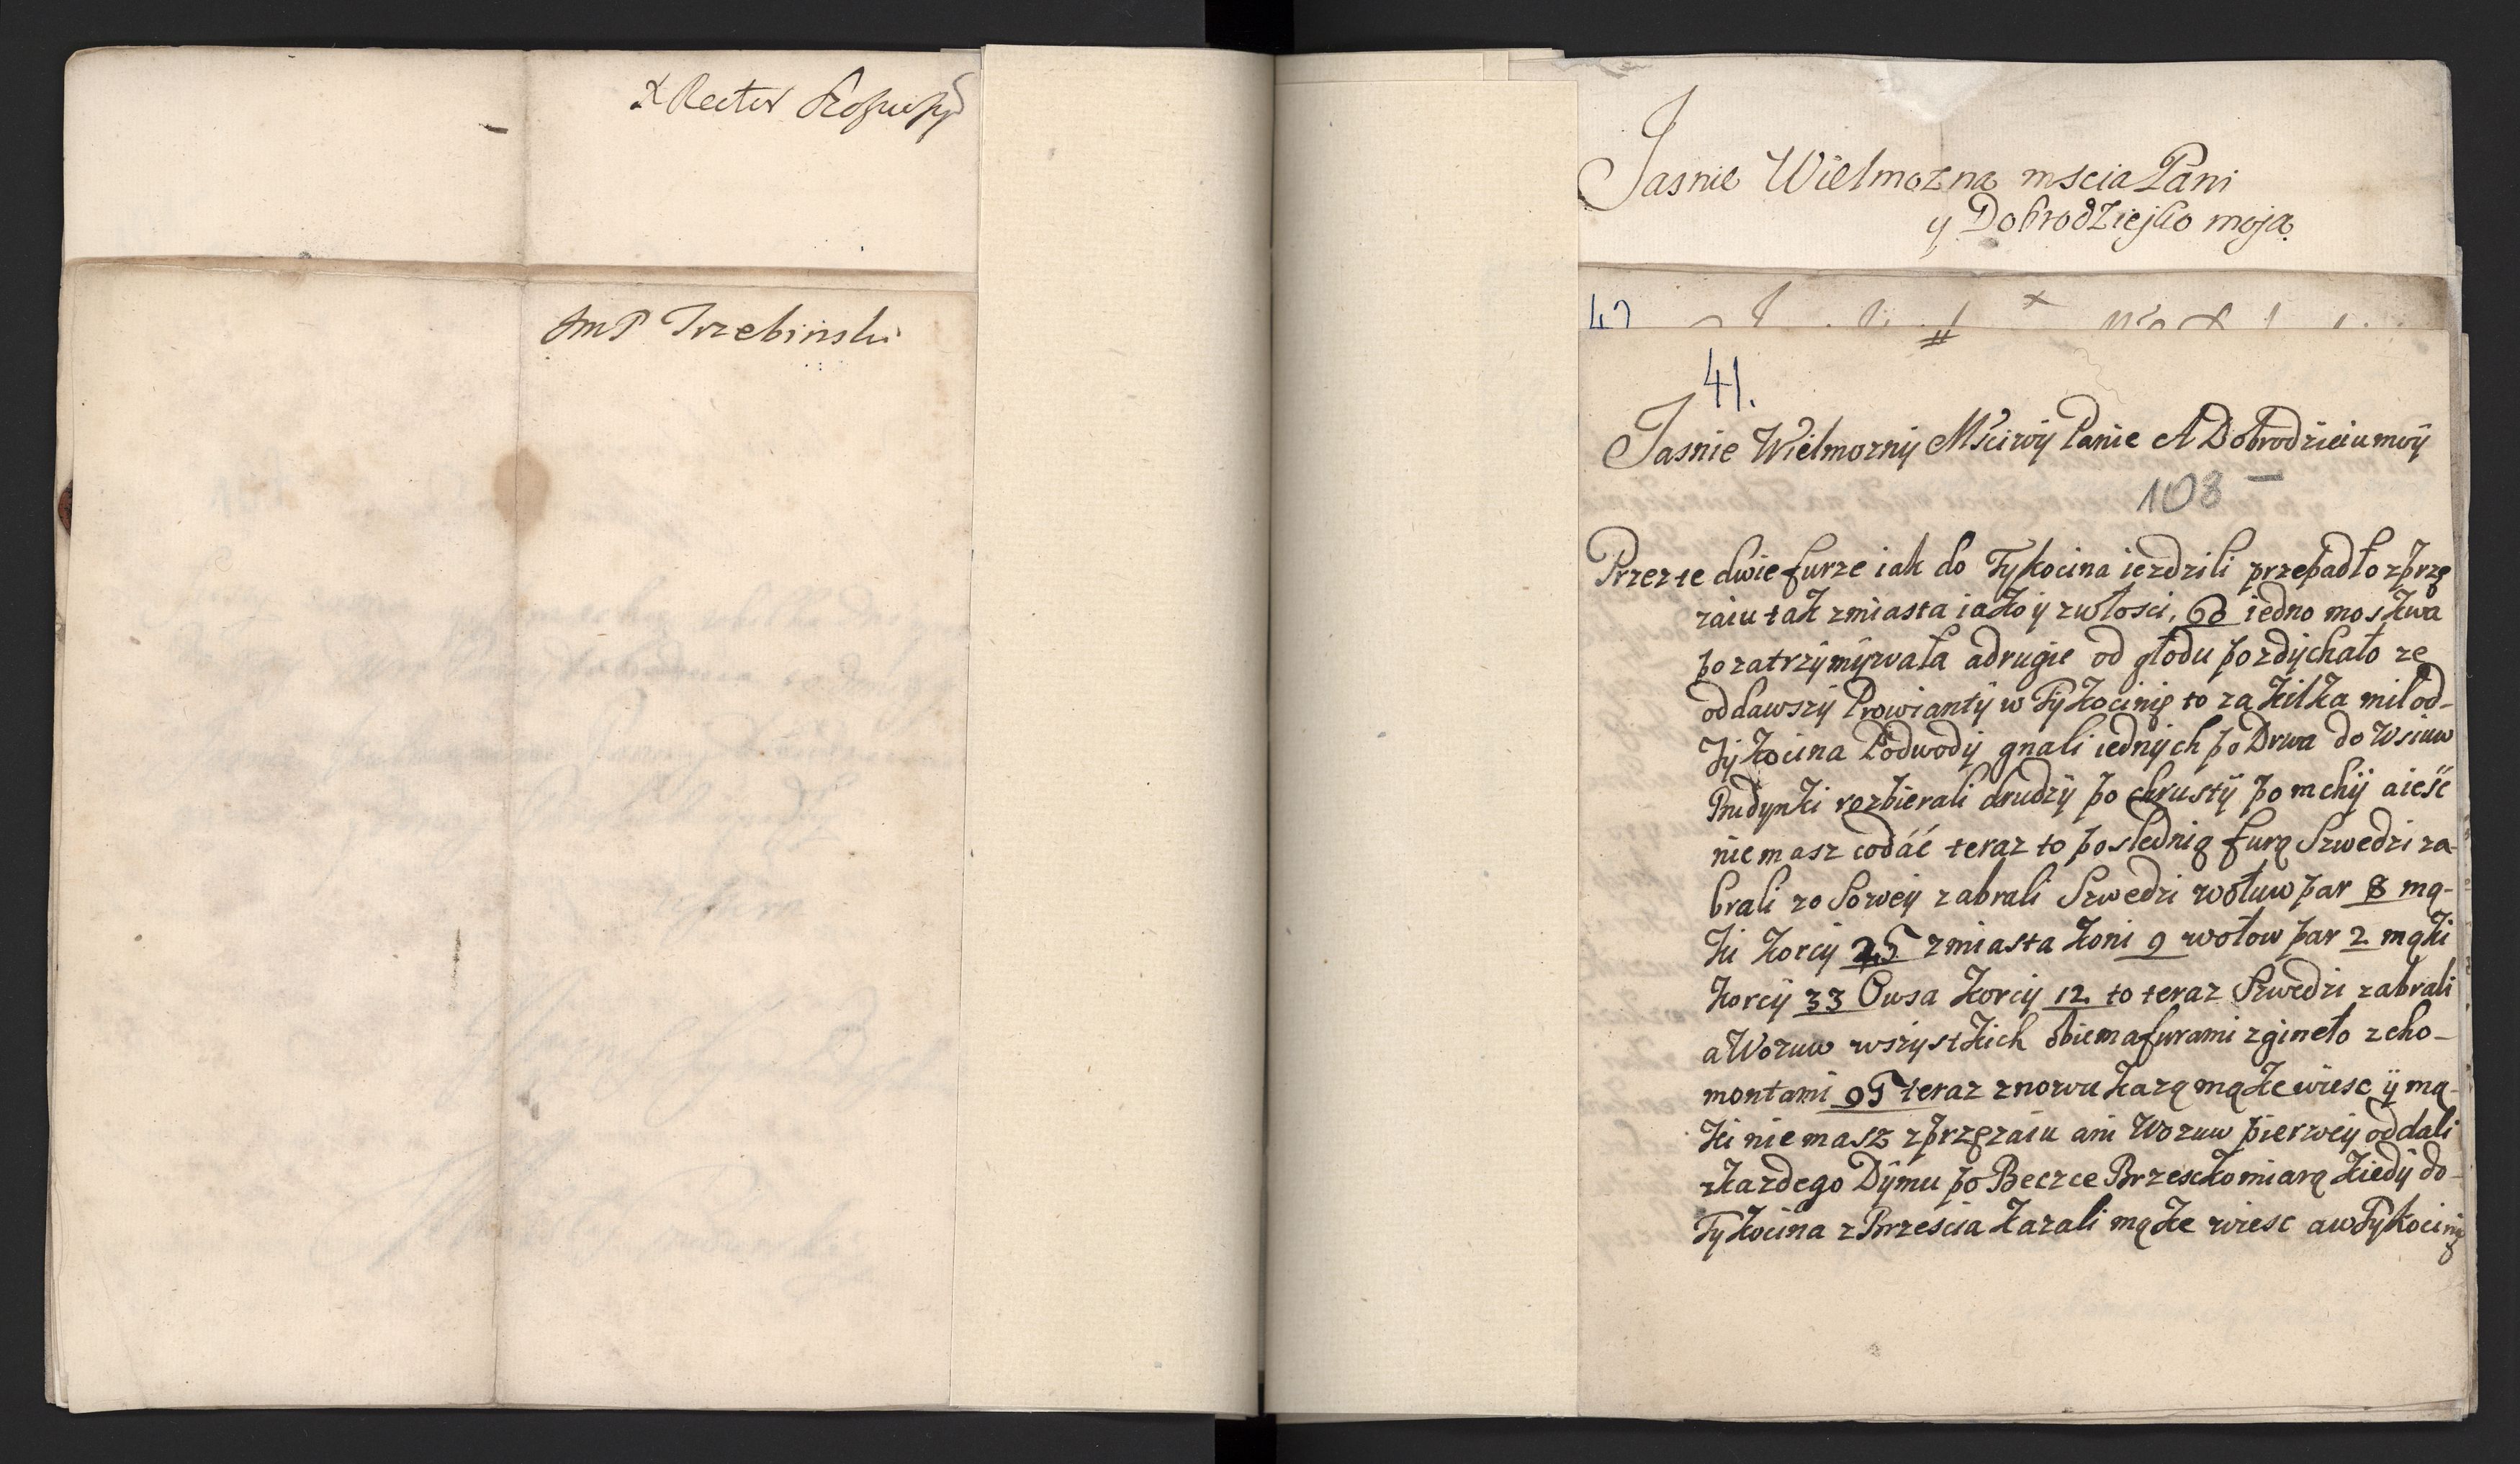 X Rector
JmP Trzebinski
Jasnie Wielmozna mscia Pani
y Dobrodziejko moja
42
#
41.
Jasnie Wielmozny Msciwy Panie A Dobrodzieiu moy
108 —
Przez te dwie furze iak do Tykocina iezdzili przepadło zprzę
zaiu tak zmiasta iako y zwłosci, 60 iedno moskwa
pozatrzymywała adrugie od głodu pozdychało ze
oddawszy Prowianty w Tykocinię to za kilka mil od-
Tykocina Podwody gnali iednych po Drwa do Wsiuw
Budynki rozbierali drudzy po chrusty po mchy aieść
nie masz co dáć teraz to poslednią furą Szwedzi za-
brali zo Sowey zabrali Szwedzi wołuw par 8 mą-
ki korcy 25 zmiasta koni 9 wołow par 2 mąki
korcy 33 Owsa korcy 12 to teraz Szwedzi zabrali
a Wozuw wszystkich obiema furami zgineło zcho-
montami 95 teraz znowu kazą mąke wiesc y mą-
ki nie masz zprzęzaiu ani Wozuw pierwey oddali
zkazdego Dymu po Beczce Brzesckomiarą kiedy do-
Tykocina z Brzescia kazali mąke wiesc aw Tykocinię